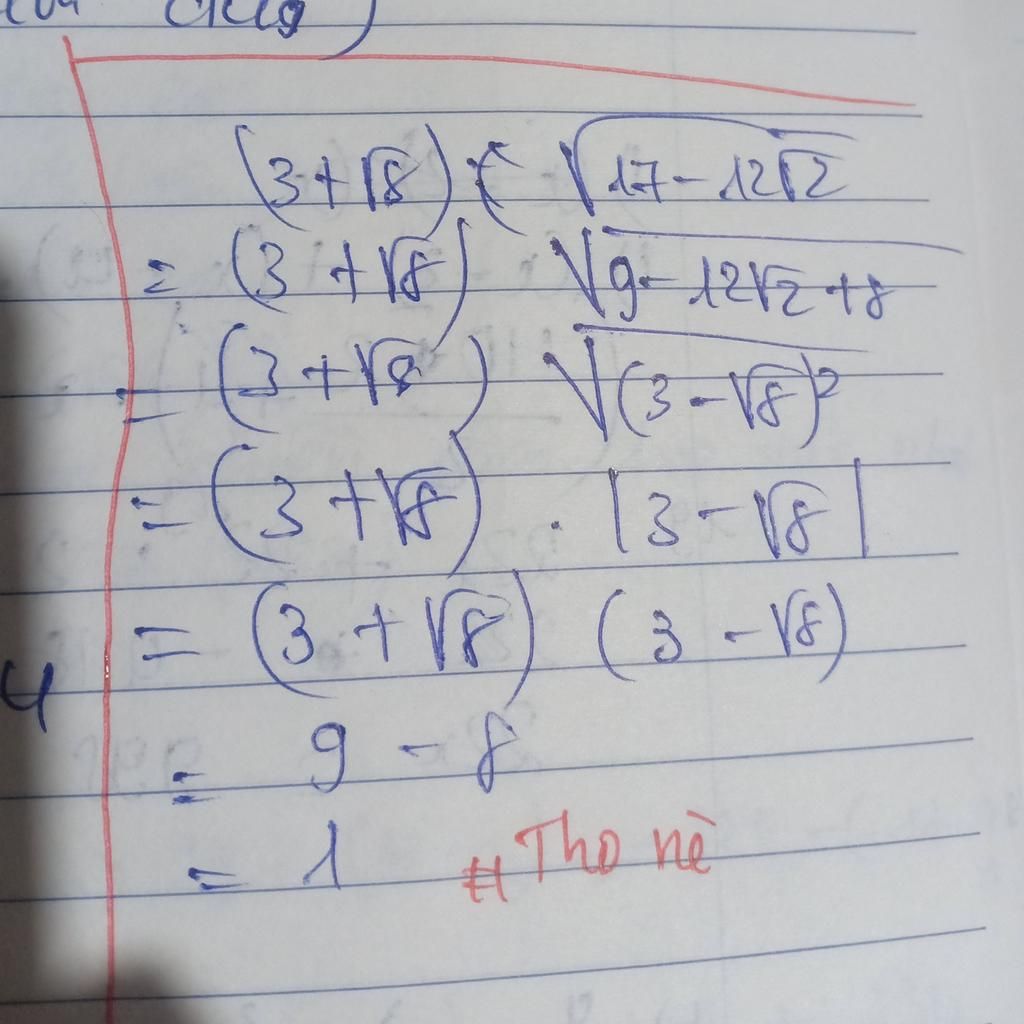 (3 + √8) √17 - 12√2
= (3 + √8) √9 - 12√2 + 8
= (3 + √8) √(3 - √8)²
= (3 + √8) . |3 - √8|
= (3 + √8) (3 - √8)
4
= 9 - 8
= 1 # Tho nè